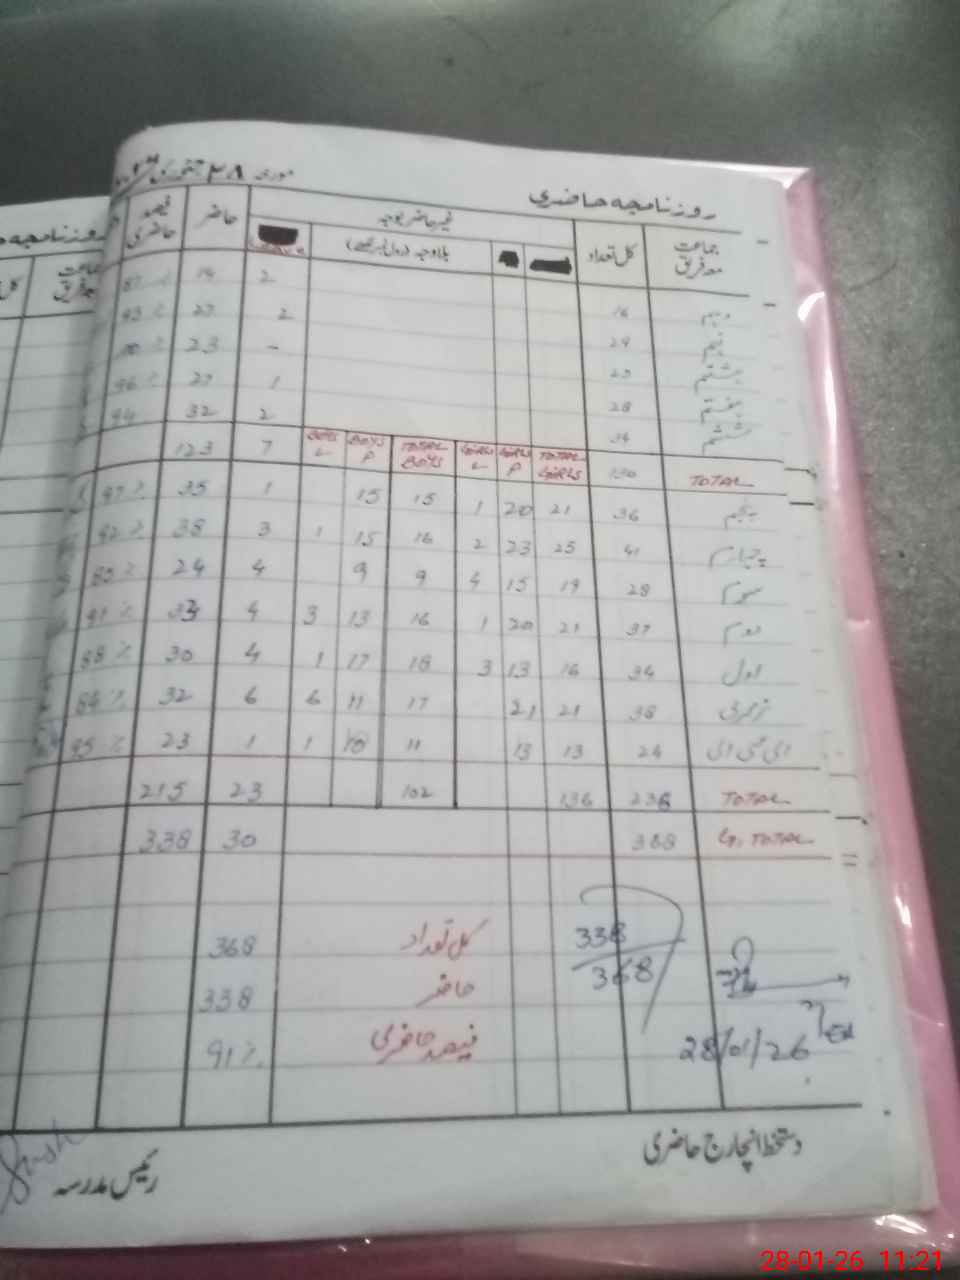 مورخہ ۲۸ جنوری
روزنامچہ حاضری
جماعت معہ فریق کل تعداد غیر حاضر بوجہ حاضر فیصد حاضری
بلاوجہ
دہم 16 2 14 87 %
نہم 29 2 27 93 %
ہشتم 23 - 23
ہفتم 28 1 27 96 %
ششم 34 2 32 94 %
TOTAL 130 TOTAL GIRLS GIRLS P GIRLS L TOTAL BOYS BOYS P BOYS L 7 123
پنجم 36 21 20 1 15 15 1 35 97 %
چہارم 41 25 23 2 16 15 1 3 38 92 %
سوم 28 19 15 4 9 9 4 24 85 %
دوم 37 21 20 1 16 13 3 4 33 91 %
اول 34 16 13 3 18 17 1 4 30 88 %
نرسری 38 21 21 17 11 6 6 32 84 %
ای سی ای 24 13 13 11 10 1 1 23 95 %
TOTAL 238 136 102 23 215
G. TOTAL 368 30 338
338 کل تعداد 368
368 حاضر 338
28/01/26 فیصد حاضری 91 %
دستخط انچارج حاضری
رئیس مدرسہ
روزنامچہ
28-01-26 11:21